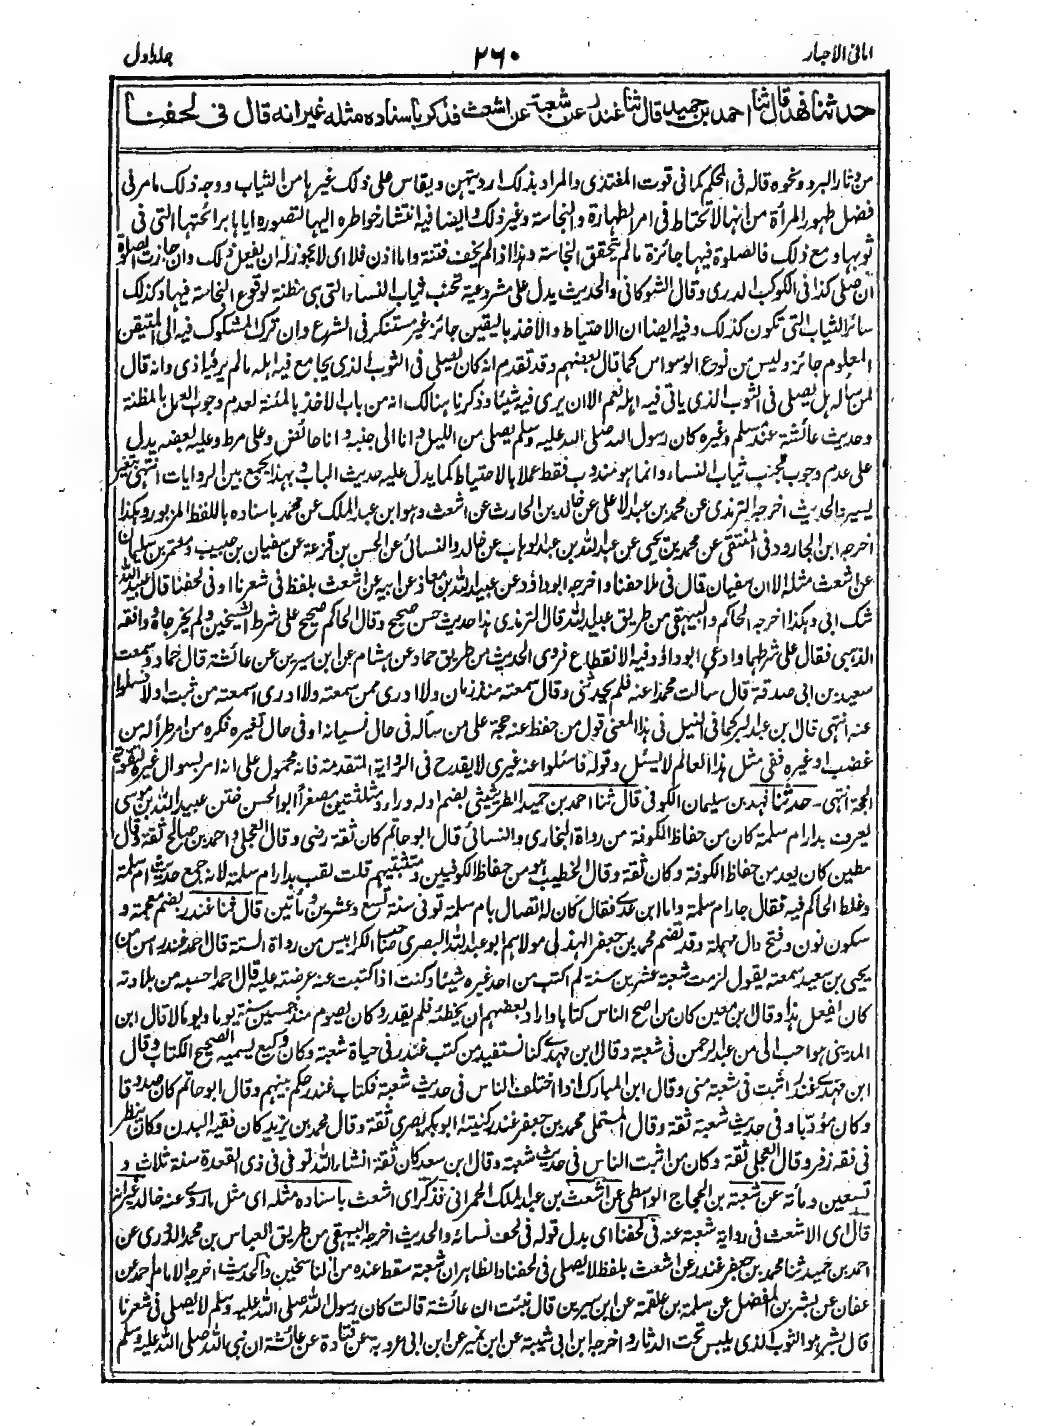 امانی الاحبار
۲۶۰
جلد اول
حدثنا فهد قال ثنا احمد بن حميد قال ثنا غندر عن شعبة عن اشعث فذكر باسناده مثله غير انه قال فى لحفنا
من دثار البرد ونحوه قاله فى المحكم كما فى قوت المغتذى والمراد بذلك ارديتهن ويقاس على ذلك غيرها من الثياب ووجه ذلك ما مر فى
فضل طهور المرأة من انها لا تحتاط فى امر الطهارة والنجاسة وغير ذلك وايضا فيه انتشار خواطره اليها لتصوره اياها برائحتها التى فى
ثوبها ومع ذلك فالصلوة فيها جائزة ما لم يتحقق النجاسة وهذا اذا لم يخف فتنة واما اذن فلا اى لا يجوز له ان يفعل ذلك وان جازت الصلوة
ان صلى كذا فى الكوكب الدرى وقال الشوكانى والحديث يدل على مشروعية تجنب ثياب النساء التى هى مظنة لوقوع النجاسة فيها وكذلك
سائر الثياب التى تكون كذلك وفيه ايضا ان الاحتياط والاخذ باليقين جائز غير مستنكر فى الشرع وان ترك المشكوك فيه الى المتيقن
المعلوم جائز وليس من نوع الوسواس كما قال بعضهم وقد تقدم انه كان يصلى فى الثوب الذى يجامع فيه اهله ما لم ير فيه اذى وانه قال
لمن سأله هل يصلى فى الثوب الذى ياتى فيه اهله نعم الا ان يرى فيه شيئا وذكرنا هنالك انه من باب الاخذ بالمئنة لعدم وجوب العمل بالمظنة
وحديث عائشة عند مسلم وغيره كان رسول الله صلى الله عليه وسلم يصلى من الليل وانا الى جنبه وانا حائض وعلى مرط وعليه بعضه يدل
على عدم وجوب تجنب ثياب النساء وانما هو مندوب فقط عملا بالاحتياط كما يدل عليه حديث الباب وبهذا يجمع بين الروايات انتهى بتغير
يسير والحديث اخرجه الترمذى عن محمد بن عبد الاعلى عن خالد بن الحارث عن اشعث وهو ابن عبد الملك عن محمد باسناده باللفظ المزبور وهكذا
اخرجه ابن الجارود فى المنتقى عن محمد بن يحيى عن عبد الله بن عبد الوهاب عن خالد والنسائى عن الحسن بن قزعة عن سفيان بن حبيب ومعتمر بن سليمان
عن اشعث مثله الا ان سفيان قال فى ملاحفنا واخرجه ابو داود عن عبيد الله بن معاذ عن ابيه عن اشعث بلفظ فى شعرنا او فى لحفنا قال عبيد الله
شك ابى وهكذا اخرجه الحاكم والبيهقى من طريق عبيد الله قال الترمذى هذا حديث حسن صحيح وقال الحاكم صحيح على شرط الشيخين ولم يخرجاه ووافقه
الذهبى فقال على شرطهما وادعى ابو داود فيه الانقطاع فروى الحديث من طريق حماد عن هشام عن ابن سيرين عن عائشة قال حماد وسمعت
سعيد بن ابى صدقة قال سألت محمدا عنه فلم يحدثنى وقال سمعته منذ زمان ولا ادرى ممن سمعته ولا ادرى اسمعته من ثبت او لا فسلوا
عنه انتهى قال بن عبد البر كما فى النيل فى هذا المعنى قول من حفظ عنه حجة على من سأله فى حال نسيانه او فى حال تغيره فكره من امر طرأ له من
غضب او غيره ففى مثل هذا العالم لا يسئل وقوله فاسئلوا عنه غيرى لا يقدح فى الرواية المتقدمة فانه محمول على انه امر بسوال غيره لتقوية
الحجة انتهى ۔ حدثنا فهد بن سليمان الكوفى قال ثنا احمد بن حميد الطريثيثى بضم اوله وراء ومثلثتين مصغرا ابو الحسن ختن عبيد الله بن موسى
يعرف بدار ام سلمة كان من حفاظ الكوفة من رواة البخارى والنسائى قال ابو حاتم كان ثقة رضى وقال العجلى واحمد بن صالح ثقة وقال
مطين كان يعد من حفاظ الكوفة وكان ثقة وقال الخطيب هو من حفاظ الكوفيين ومتثبتيهم قلت لقب بدار ام سلمة لانه جمع حديث ام سلمة
وغلط الحاكم فيه فقال جار ام سلمة واما ابن عدى فقال كان له اتصال بام سلمة توفى سنة تسع وعشرين ومأتين قال ثنا غندر بضم معجمة و
سكون نون وفتح دال مهملة وقد تضم محمد بن جعفر الهذلى مولاهم ابو عبد الله البصرى صاحب الكرابيس من رواة الستة قال احمد غندر اسن من
يحيى بن سعيد سمعته يقول لزمت شعبة عشرين سنة لم اكتب من احد غيره شيئا وكنت اذا كتبت عنه عرضته عليه قال احمد احسبه من بلادته
كان يفعل هذا وقال ابن معين كان من اصح الناس كتابا واراد بعضهم ان يخطئه فلم يقدر وكان يصوم منذ خمسين سنة يوما ويوما لا قال ابن
المدينى هو احب الى من عبد الرحمن فى شعبة وقال ابن مهدى كنا نستفيد من كتب غندر فى حياة شعبة وكان وكيع يسميه الصحيح الكتاب وقال
ابن مهدى غندر اثبت فى شعبة منى وقال ابن المبارك اذا اختلف الناس فى حديث شعبة فكتاب غندر حكم بينهم وقال ابو حاتم كان صدوقا
وكان مؤدبا وفى حديث شعبة ثقة وقال المستملى محمد بن جعفر غندر كنيته ابو بكر بصرى ثقة وقال محمد بن يزيد كان فقيه البدن وكان ينظر
فى فقه زفر وقال العجلى ثقة وكان من اثبت الناس فى حديث شعبة وقال ابن سعد كان ثقة انشاء الله توفى فى ذى القعدة سنة ثلاث و
تسعين ومأة عن شعبة بن الحجاج الواسطى عن اشعث بن عبد الملك الحمرانى فذكر اى اشعث باسناده مثله اى مثل ما روى عنه خالد غير انه
قال اى الاشعث فى رواية شعبة عنه فى لحفنا اى بدل قوله فى لحف نسائه والحديث اخرجه البيهقى من طريق العباس بن محمد الدورى عن
احمد بن حميد ثنا محمد بن جعفر غندر عن اشعث بلفظ لا يصلى فى لحفنا والظاهر ان شعبة سقط عنده من الناسخين والحديث اخرجه الامام احمد عن
عفان عن بشر بن المفضل عن سلمة بن علقمة عن ابن سيرين قال نبئت ان عائشة قالت كان رسول الله صلى الله عليه وسلم لا يصلى فى شعرنا
قال بشر هو الثوب الذى يلبس تحت الدثار واخرجه ابن ابى شيبة عن ابن نمير عن ابن ابى عروبة عن قتادة عن عائشة ان نبى الله صلى الله عليه وسلم